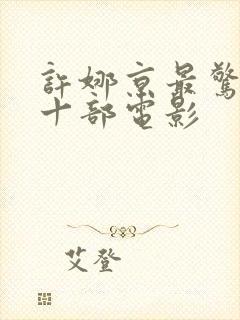 許娜京最驚
十部電影
艾登